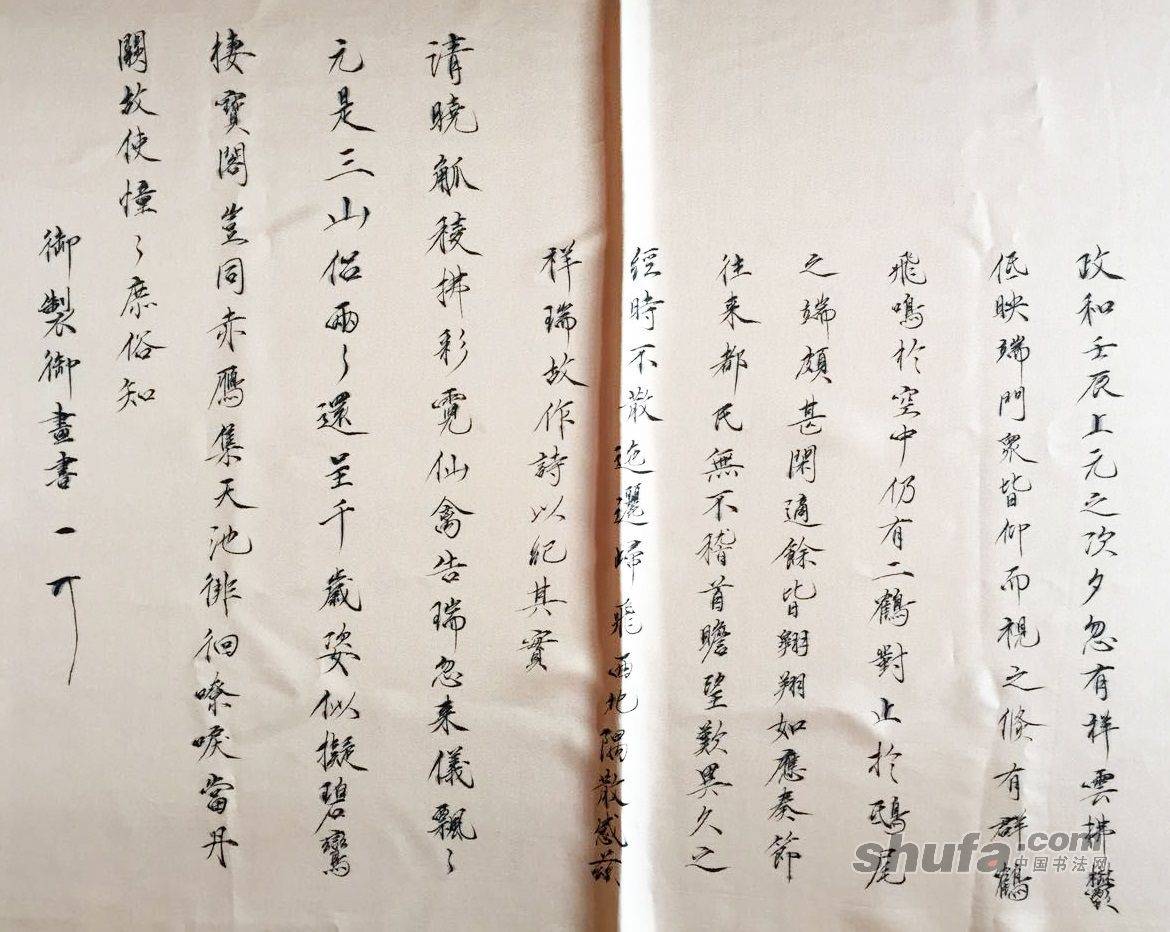 政和壬辰上元之次夕忽有祥雲拂鬱
低映端門眾皆仰而視之倏有群鶴
飛鳴於空中仍有二鶴對止於鴟尾
之端頗甚閑適餘皆翱翔如應奏節
往来都民無不稽首瞻望歎異久之
經時不散迤邐歸飛西北隅散感茲
祥瑞故作詩以紀其實
清曉觚稜拂彩霓仙禽告瑞忽来儀飄々
元是三山侶兩々還呈千歲姿似擬碧鸞
棲寶閣豈同赤鴈集天池徘徊嘹唳當丹
闕故使憧々庶俗知
御製御畫書
shufa.com
中国书法网